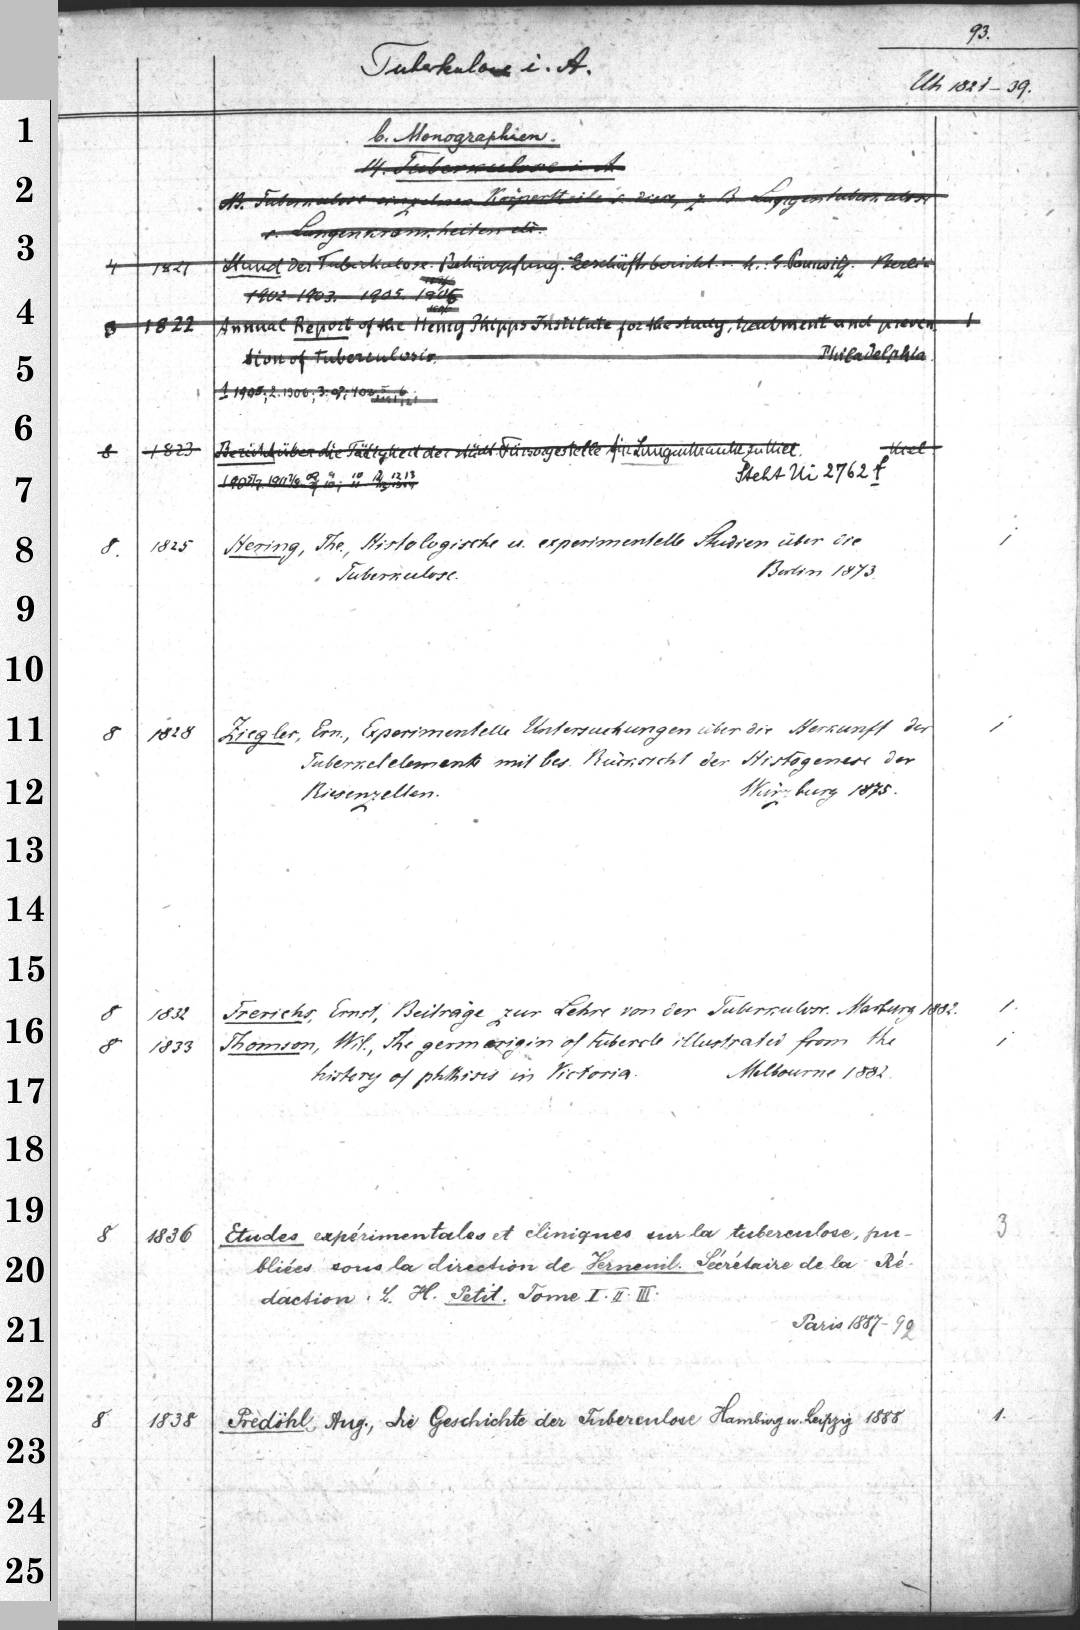 93.
Tuberkulose i. A.
Uh 1821–39.
b. Monographien.
14. Tuberkulose i. A
NB. Tuberkulose einzelner Körperteile s. diese, z. B. Lungentuberkulose
s. Lungenkrankheiten etc.
4 1821 Stand der Tuberkulose-Bekämpfung. Geschäftsbericht v. Pannwitz. Berlin
1902–1903. 1905. 1906
8 1822 Annual Report of the Henry Phipps Institute for the study, treatment and preven 1
tion of Tuberculosis. Philadelphia.
1 1905; 2. 1906; 3.
8 1823 Bericht über die Tätigkeit der städt. Fürsorgestelle für Lungenkranke zu Kiel. Kiel
Steht Ui 2762 f
8. 1825 Hering, The., Histologische u. experimentelle Studien über die i
Tuberkulose. Berlin 1873.
8 1828 Ziegler, Ern., Experimentelle Untersuchungen über die Herkunft der i
Tuberkelelemente mit bes. Rücksicht der Histogenese der
Riesenzellen. Würzburg 1875.
8 1832 Frerichs, Ernst, Beiträge zur Lehre von der Tuberkulose. Marburg 1882. 1.
8 1833 Thomson, Wil., The germ origin of tubercle illustrated from the i
history of phthisis in Victoria. Melbourne 1882.
8 1836 Etudes expérimentales et cliniques sur la tuberculose, pu- 3
bliées sous la direction de Verneuil. Sécrétaire de la Ré-
daction: L. H. Petit. Tome I. II. III.
Paris 1887–92
8 1838 Predöhl, Aug., die Geschichte der Tuberculose Hamburg u. Leipzig 1888 1.
1
2
3
4
5
6
7
8
9
10
11
12
13
14
15
16
17
18
19
20
21
22
23
24
25